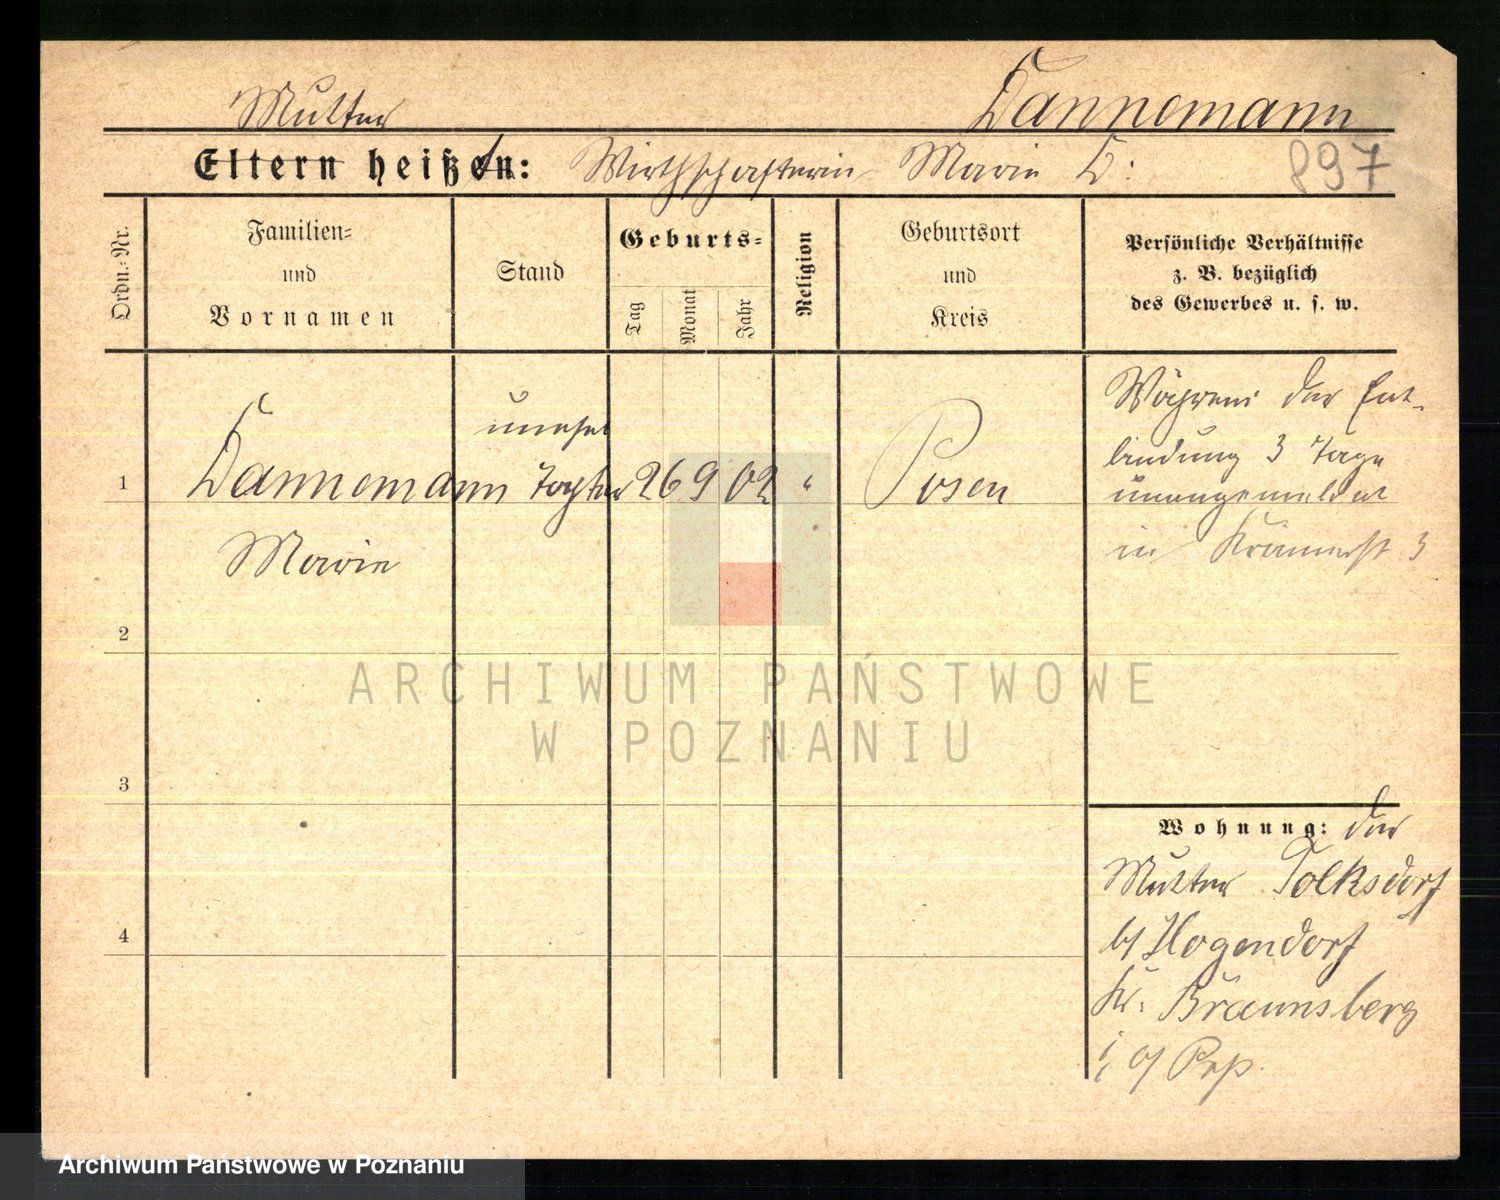 Mutter
Dannemann
Eltern heißen: Wirthschafterin Marie D:
897
Ordn.-Nr.
Familien-
und
Vornamen
Stand
Geburts-
Tag
Monat
Jahr
Religion
Geburtsort
und
Kreis
Persönliche Verhältnisse
z. B. bezüglich
des Gewerbes u. s. w.
1
Dannemann
Marie
unehel
Tochter
26 9 02
Posen
Während der Ent-
bindung 3 Tage
unangemeldet
in Krämerst 3
2
3
4
Wohnung: der
Mutter Tolksdorf
b/ Hogendorf
Kr. Braunsberg
i/ O/ Prß.
ARCHIWUM PAŃSTWOWE
W POZNANIU
Archiwum Państwowe w Poznaniu